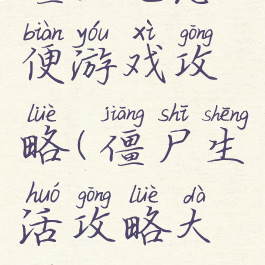 biàn yóu xì gōng
便游戏攻
lüè jiāng shī shēng
略(僵尸生
huó gōng lüè dà
活攻略大